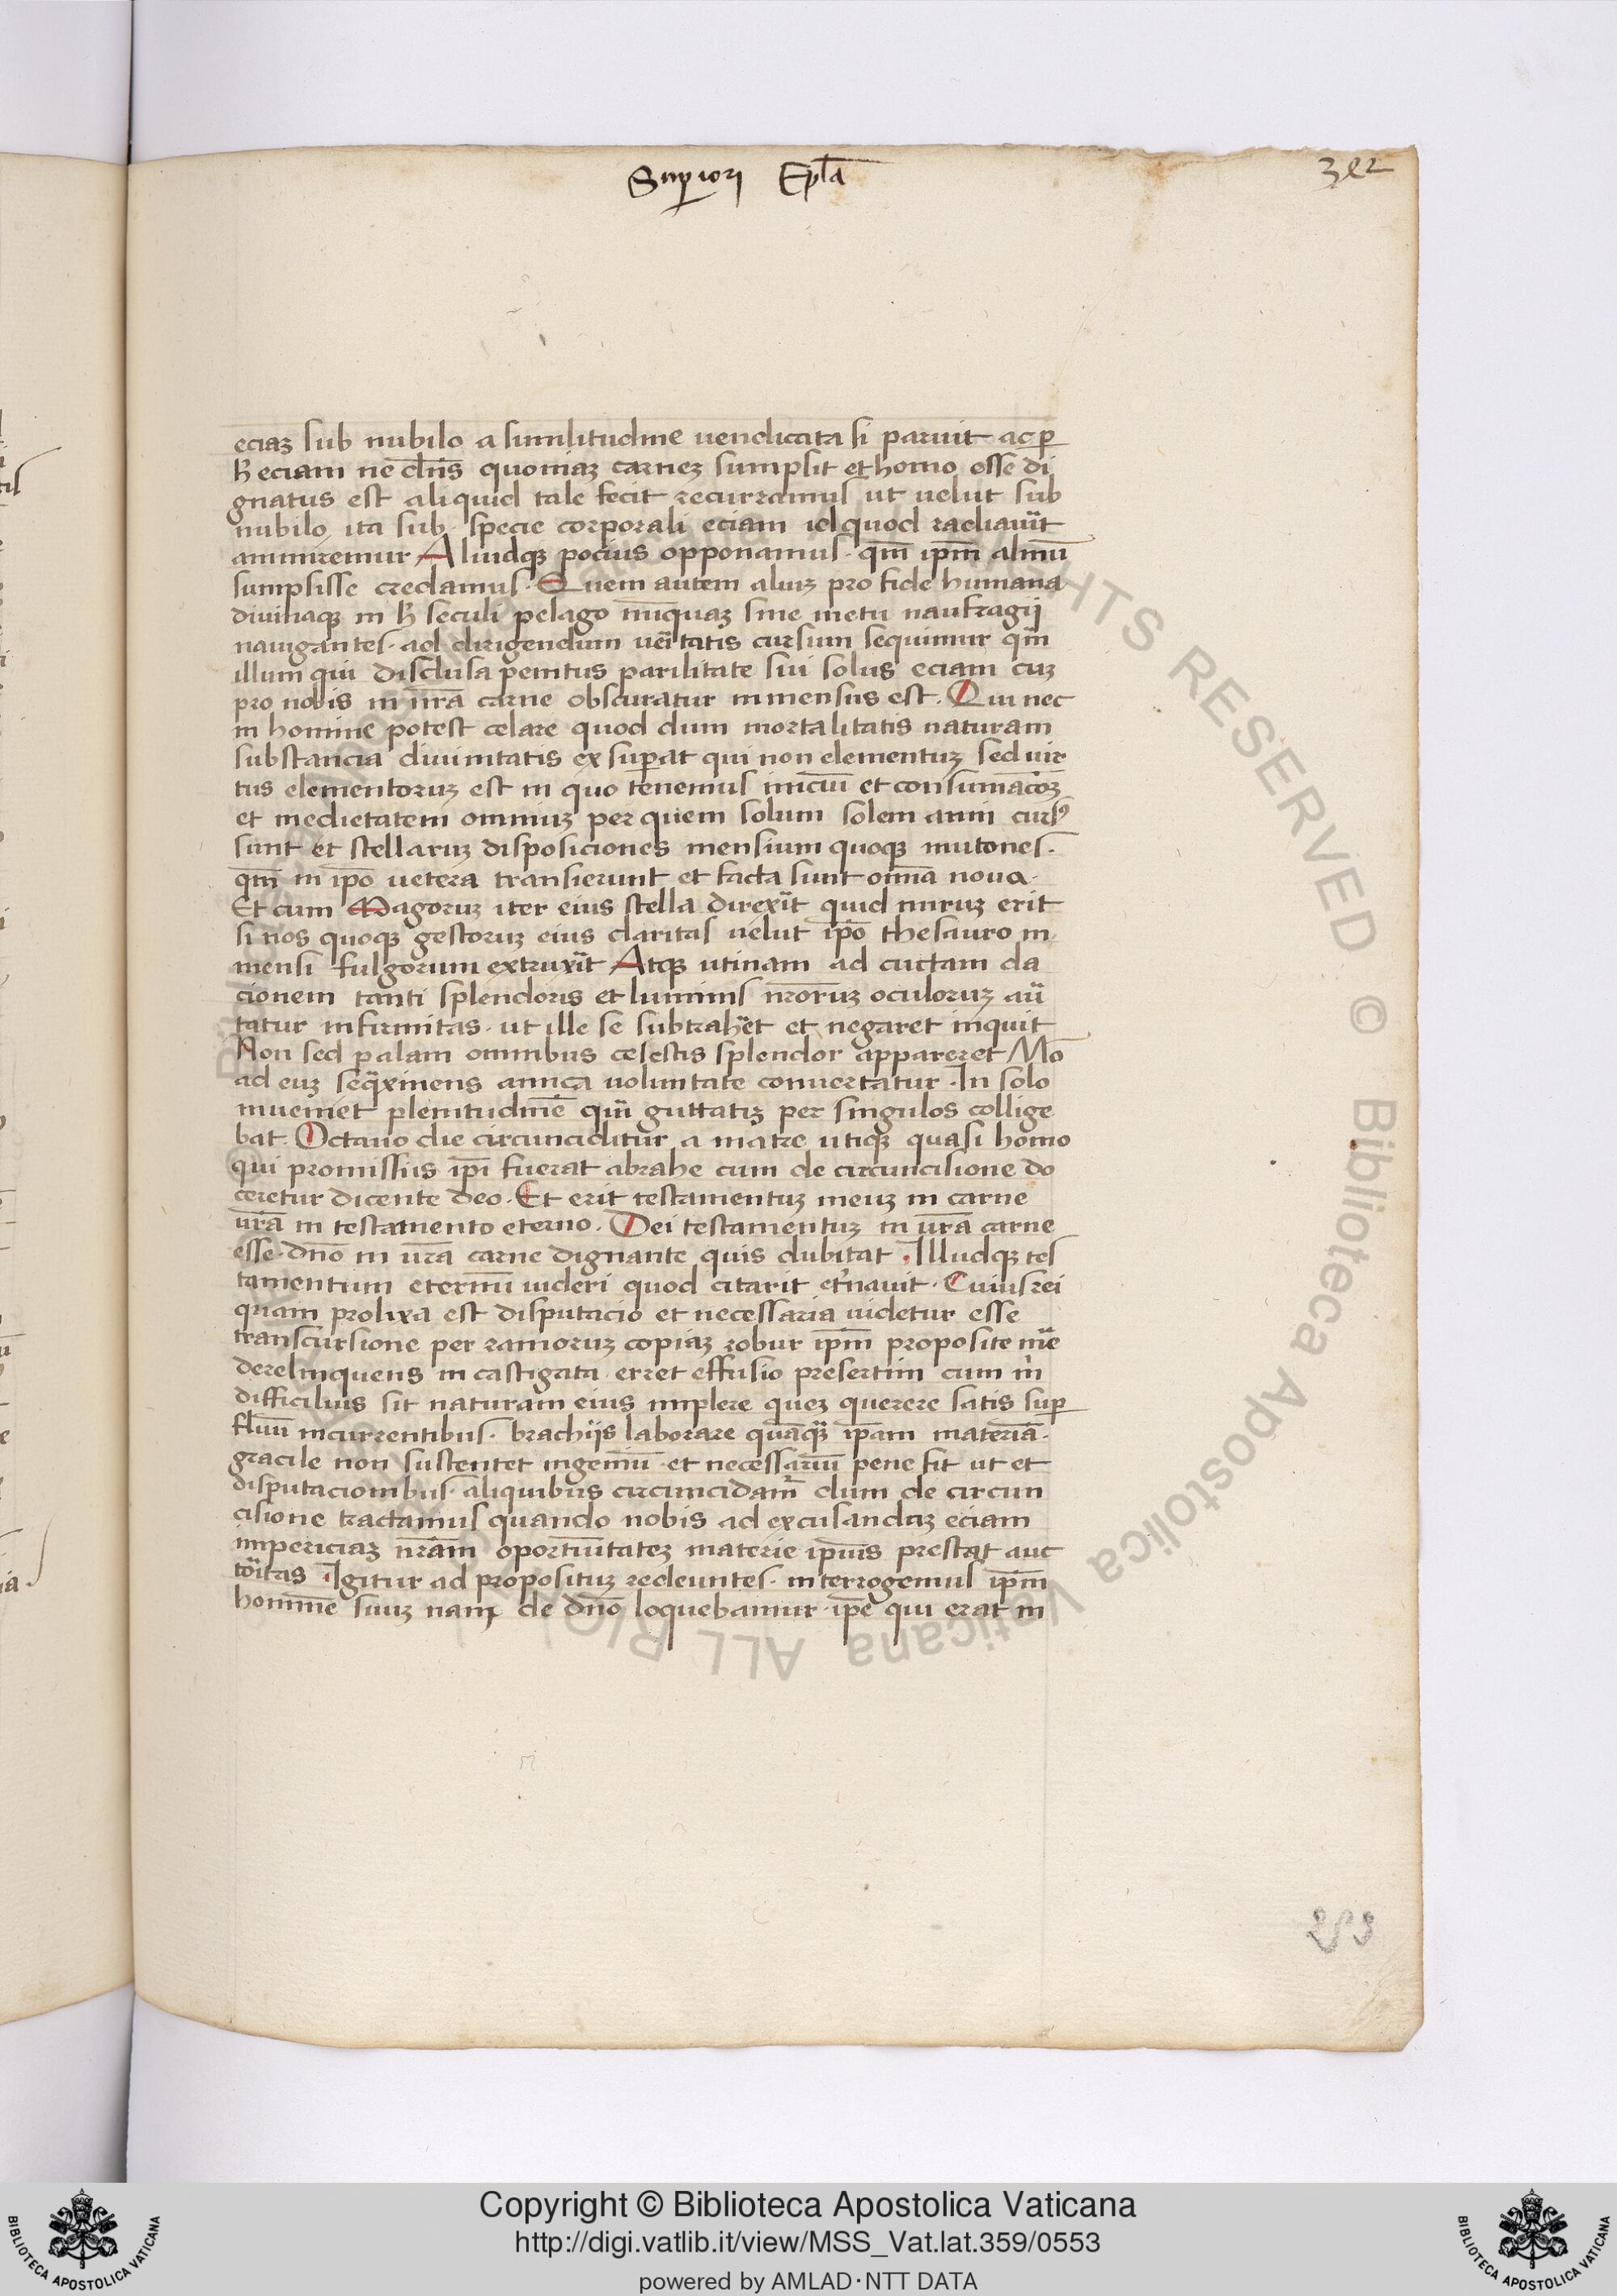 Sup̲iori Ep̅la
3ꝛ2
eciaꝫ sub nubilo a similitudine uendicata si paruit ac p̲
h̅ eciam ne dn̅s quoniaꝫ carneꝫ sumpsit et homo esse di
gnatus est aliquid tale fecit recurramus ut uelut sub
nubilo ita sub specie corporali eciam id quod radiauit
ammiremur Aliudqꝫ pocius opponamus · qm̅ ip̅m almu̅
sumpsisse credamus · Quem autem aliuꝫ pro fide humana
diuinaqꝫ in h̅ seculi pelago nu̅quaꝫ sine metu naufragij
nauigantes · ad dirigendum ueritatis cursum sequimur qm̅
illum qui disclusa penitus parilitate sui solus eciam cuꝫ
pro nobis in nr̅a carne obscuratur inmensus est · Qui nec
in homine potest celare quod dum mortalitatis naturam
substancia diuinitatis exsuperat qui non elementuꝫ sed uir
tus elementoruꝫ est in quo tenemus iniciu̅ et consumac̅oꝫ
et medietatem omniuꝫ per quem solum solem anni curs9
sunt et stellaruꝫ disposiciones mensium quoqꝫ mutones ·
qm̅ in ip̅o uetera transierunt et facta sunt om̅ia noua ·
Et cum Magoruꝫ iter eius stella direxit quid miruꝫ erit
si nos quoqꝫ gestoruꝫ eius claritas uelut ip̅o thesauro in
mensi fulgorum extruxit Atqꝫ utinam ad cuctam da
cionem tanti splendoris et luminis nr̅oruꝫ oculoruꝫ au
tatur infirmitas · ut ille se subtrahet et negaret inquit
Non sed palam omnibus celestis splendor appareret Mo̅
ad euꝫ amica uoluntate conuertatur · In solo
inueniet plenitudine̅ qui̅ guttatiꝫ per singulos collige
bat · Octauo die circunciditur a matre utiqꝫ quasi homo
qui promissus ip̅i fuerat abrahe cum de circuncisione do
ceretur dicente deo · Et erit testamentuꝫ meuꝫ in carne
ur̅a in testamento eterno · Dei testamentuꝫ in ur̅a carne
esse · dn̅o in ur̅a carne dignante quis dubitat · Illudqꝫ tes
tamentum eternu̅ uideri quod citarit et'nauit · Cuius rei
quam prolixa est disputacio et necessaria uidetur esse
transcursione per ramoruꝫ copiaꝫ robur ip̅m proposite me
derelinquens in castigata erret effusio presertim cum m̅
difficilius sit naturam eius implere queꝫ querere satis sup̲
fluu̅ incurrentibus · brachijs laborare qua̅qꝫ ip̅am materia̅ ·
gracile non sustentet ingeniu̅ · et necessariu̅ pene fit ut et
disputacionibus · aliquibus circuncidam̅ dum de circun
cisione tractamus quando nobis ad excusandaꝫ eciam
impericiaꝫ nr̅am oportu̅itateꝫ materie ip̅ius prestat auc
toritas · Igitur ad propositum redeuntes · interrogemus ip̅m
homine̅ suuꝫ nam de dn̅o loquebamur · ip̅e qui erat in
253
Copyright © Biblioteca Apostolica Vaticana
http://digi.vatlib.it/view/MSS_Vat.lat.359/0553
powered by AMLAD·NTT DATA
BIBLIOTECA APOSTOLICA VATICANA
BIBLIOTECA APOSTOLICA VATICANA
© Biblioteca Apostolica Vaticana ALL RIGHTS RESERVED